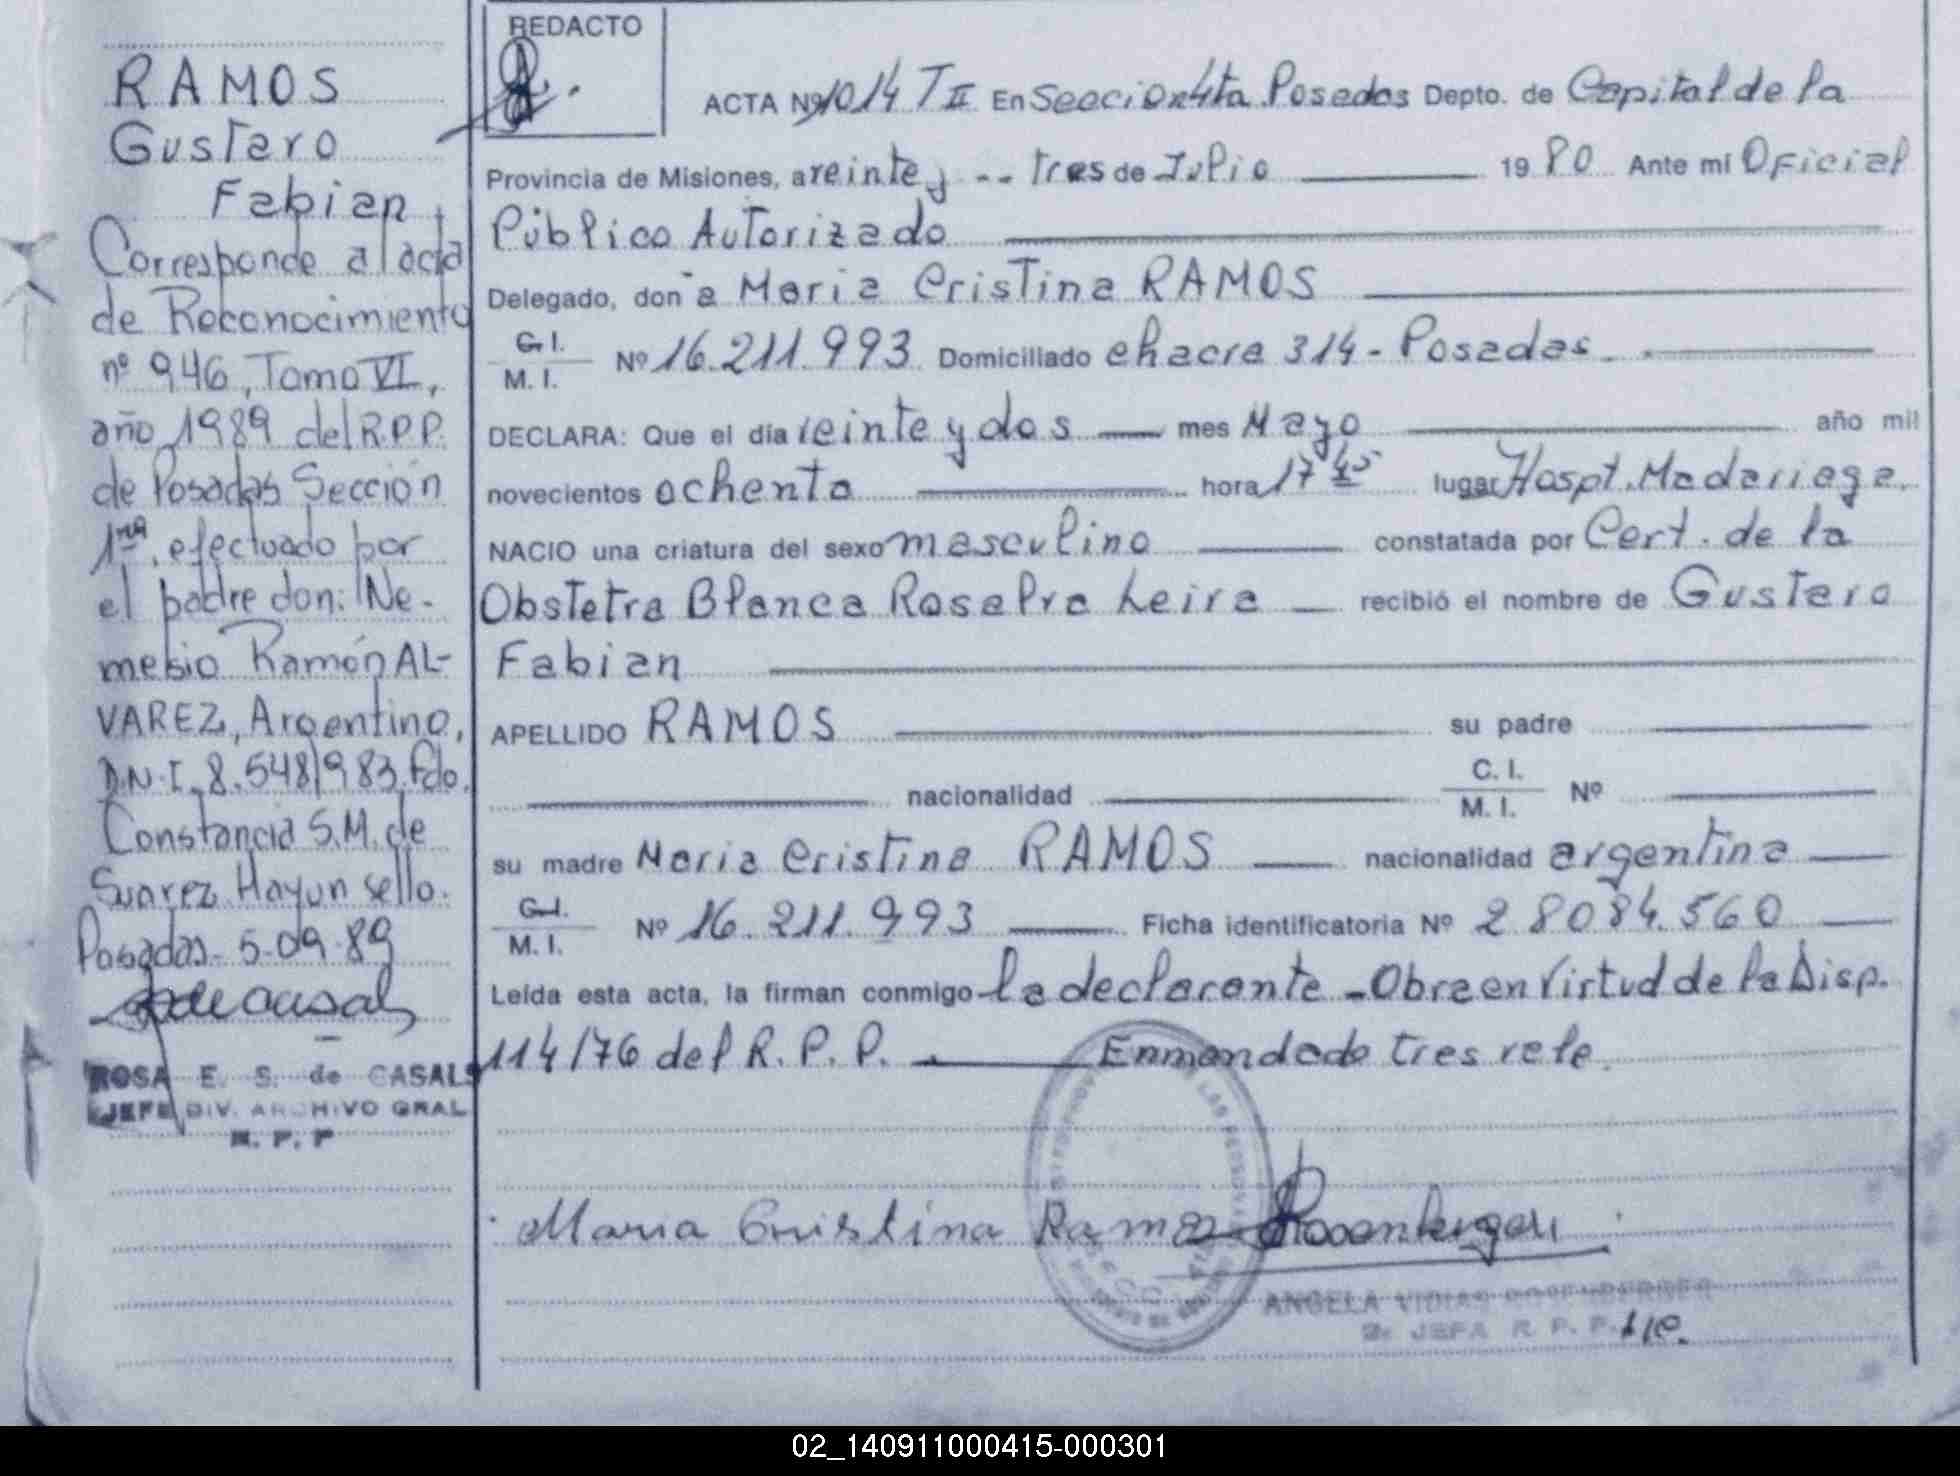 RAMOS
Gustavo
Fabian
Corresponde al acta
de Reconocimiento
nº 946, Tomo VI,
año 1989 del R.P.P.
de Posadas Sección
1ra. efectuado por
el padre don: Ne-
mesio Ramón AL-
VAREZ, Argentino,
D.N.I. 8.548.983. fdo.
Constancia S.M. de
Suarez Hayun sello.
Posadas. 5-09-89
ROSA E. S. de CASALS
JEFE DIV. ARCHIVO GRAL
R. P. P
REDACTO
ACTA Nº 1014 T II En Seccion 4ta Posadas Depto. de Capital de la
Provincia de Misiones, a veinte y -- tres de Julio 19 80 Ante mí Oficial
Público Autorizado
Delegado, don ̃a Maria Cristina RAMOS
C. I.
M. I. Nº 16.211.993 Domiciliado chacra 314 - Posadas.
DECLARA: Que el día veinte y dos mes Mayo año mil
novecientos ochenta hora 17 45 lugar Hospt. Madariaga.
NACIO una criatura del sexo masculino constatada por Cert. de la
Obstetra Blanca Rosalva Leiva recibió el nombre de Gustavo
Fabian
APELLIDO RAMOS su padre
nacionalidad C. I.
M. I. Nº
su madre Maria Cristina RAMOS nacionalidad argentina
C. I.
M. I. Nº 16.211.993 Ficha identificatoria Nº 28084.560
Leída esta acta, la firman conmigo la declarante - Obra en Virtud de la Disp.
114/76 del R. P. P. Enmendado tres vale.
Maria Cristina Ramos Rosenberger
ANGELA VIDIAS ROSENBERGER
2º JEFA R. P. P.
02_140911000415-000301